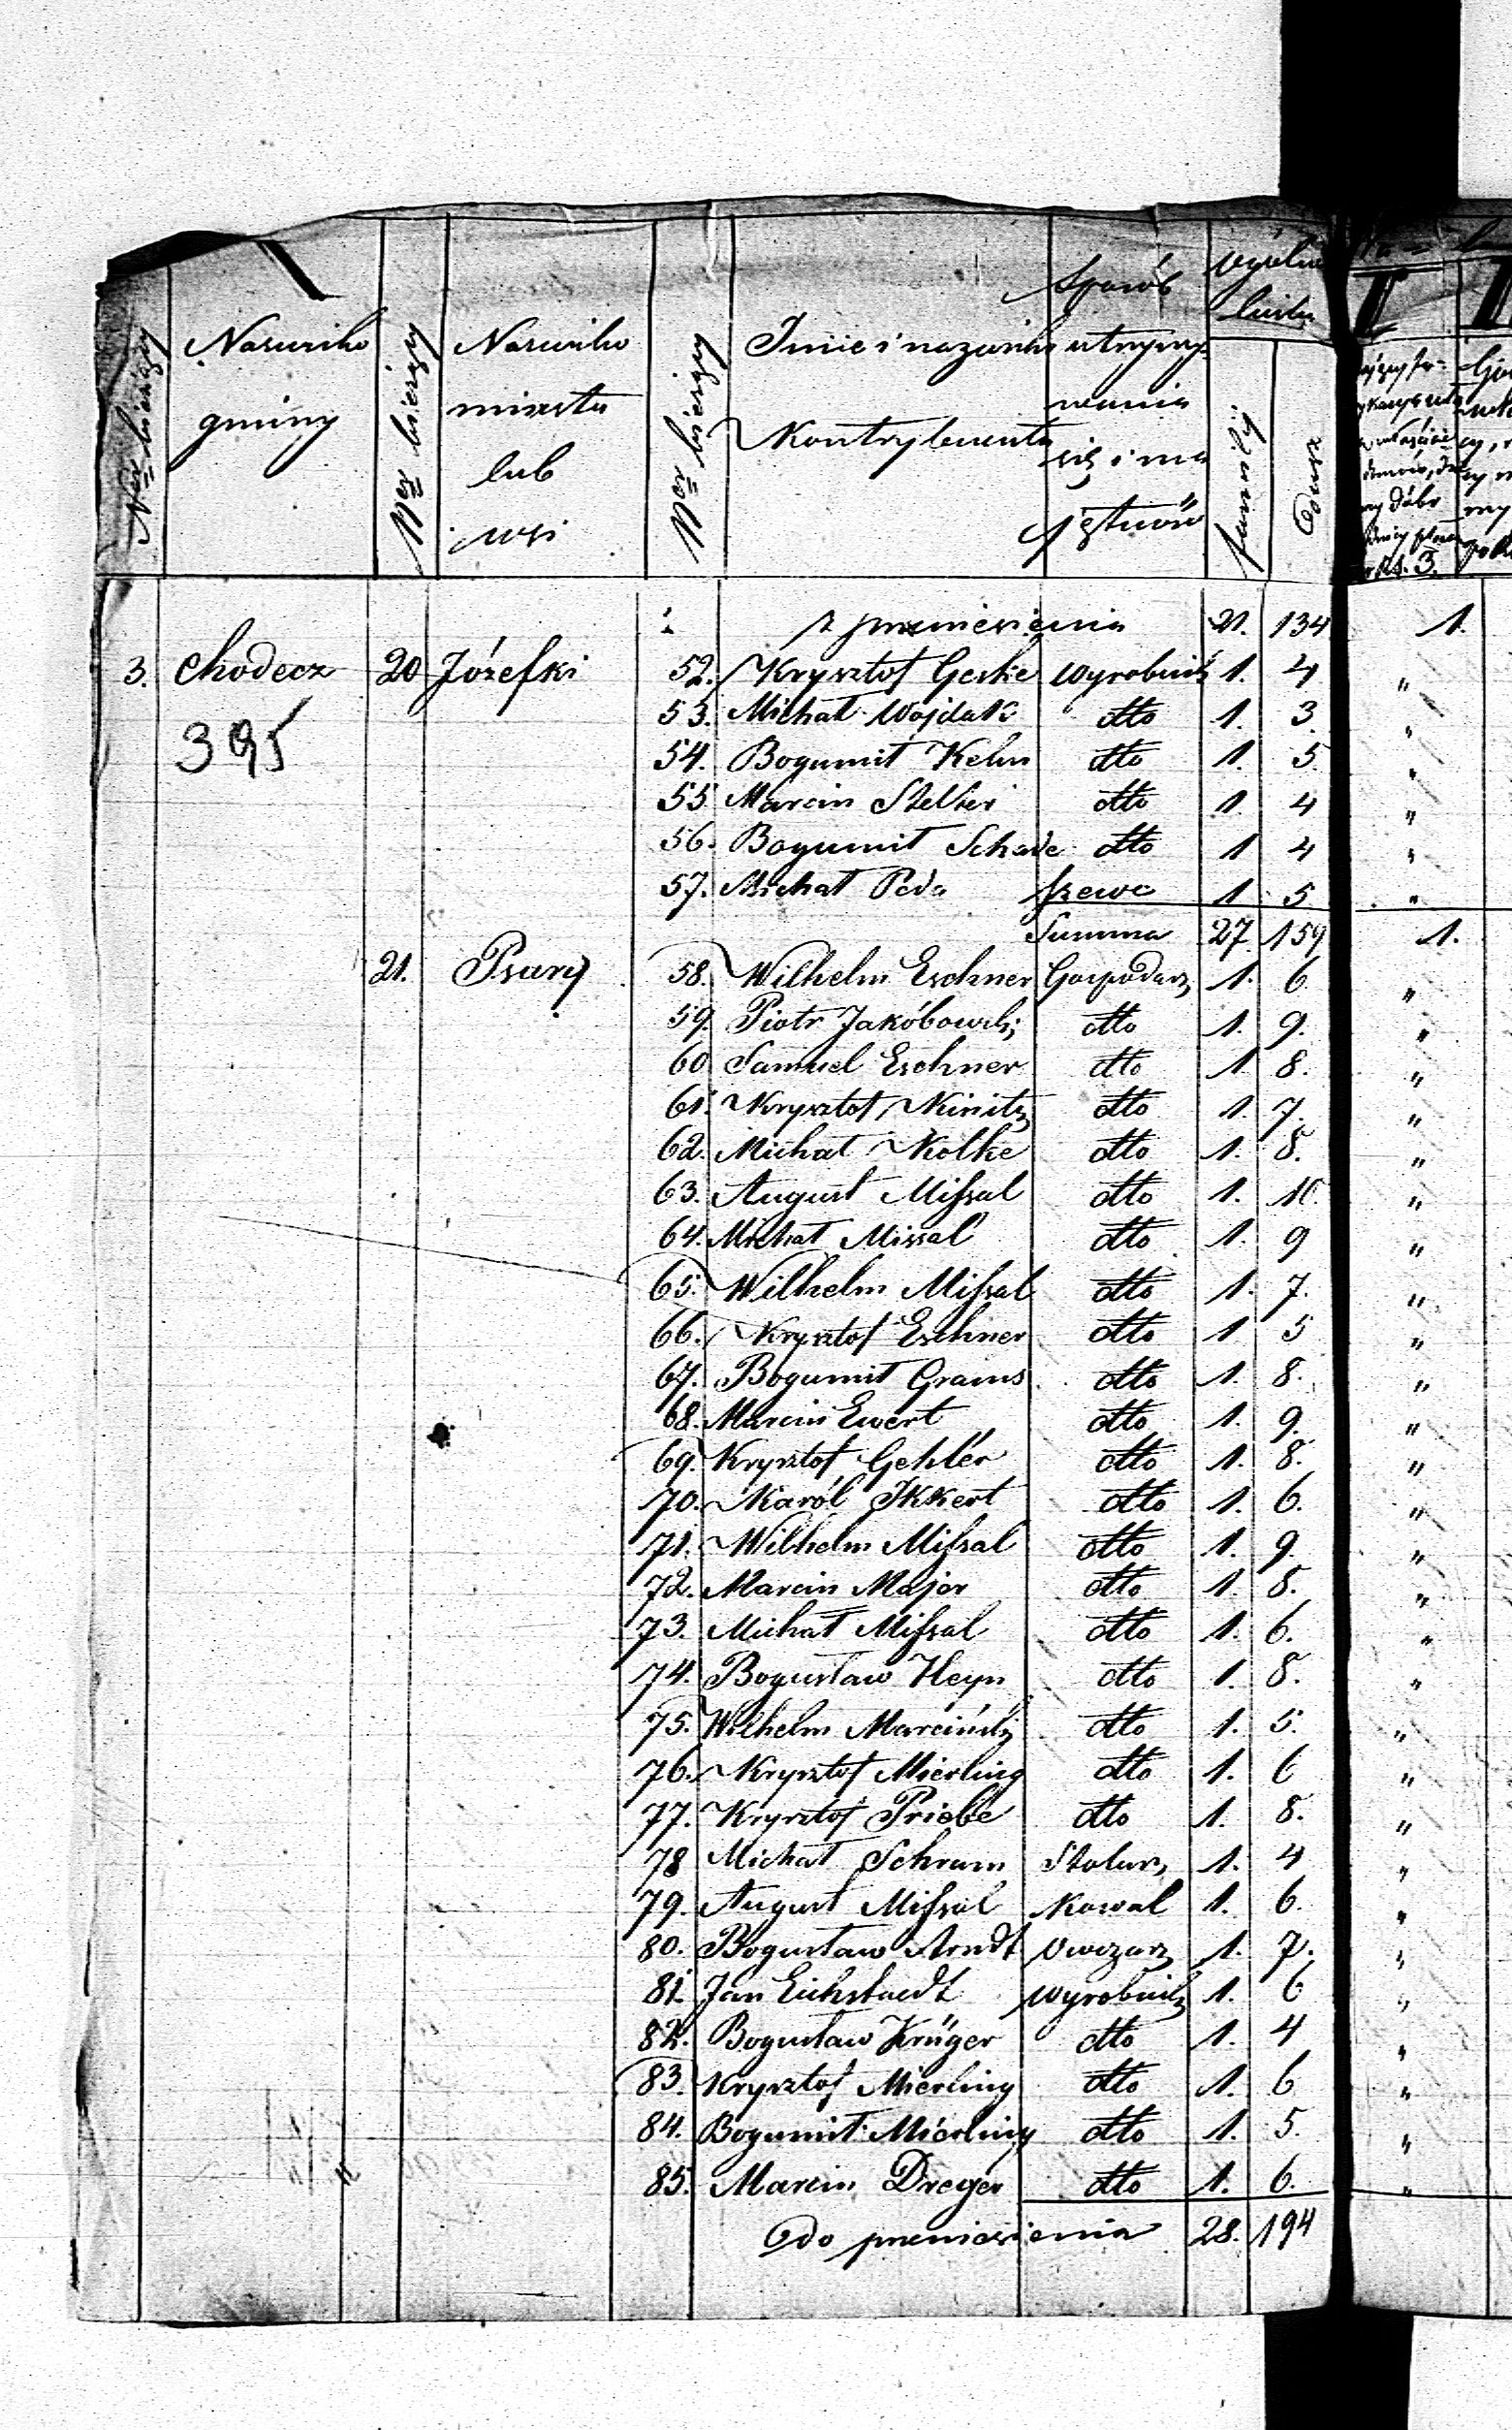 Ner bieżący
Nazwisko gminy
Ner bieżący
Nazwisko miasta lub wsi
Ner bieżący
Imie i nazwisko Kontrybuenta
Sposób utrzymywania się i majętność
familij
Dusz
z przeniesienia 21. 134 1.
3. Chodecz 20 Józefki 52. Krysztof Geske wyrobnik 1. 4 "
395
53. Michał Wojdak dtto 1. 3 "
54. Bogumił Kelm dtto 1. 5 "
55 Marcin Stelter dtto 1 4 "
56. Bogumił Schade dtto 1 4 "
57. Michał Peda szewc 1 5 "
Summa 27 159 1.
21. Psary 58. Wilhelm Eschner Gospodarz 1. 6 "
59. Piotr Jakóbowski dtto 1. 9. "
60 Samuel Eschner dtto 1 8. "
61. Krysztof Kinitz dtto 1. 7. "
62. Michał Kolke dtto 1. 8. "
63. August Missal dtto 1. 10. "
64. Michał Missal dtto 1. 9 "
65. Wilhelm Missal dtto 1. 7. "
66. Krysztof Eschner dtto 1 5 "
67. Bogumił Grams dtto 1. 8. "
68. Marcin Ewert dtto 1. 9. "
69. Krysztof Gehler dtto 1. 8. "
70. Karól Ikkert dtto 1. 6. "
71. Wilhelm Missal dtto 1. 9. "
72. Marcin Major dtto 1. 8. "
73. Michał Missal dtto 1. 6. "
74. Bogusław Heyn dtto 1. 8. "
75. Wilhelm Marcińskij dtto 1. 5. "
76. Krysztof Mierling dtto 1. 6 "
77. Krysztof Priebe dtto 1. 8. "
78 Michał Schram Stolarz 1. 4 "
79. August Missal Kowal 1. 6. "
80. Bogusław Arndt Owczarz 1. 7. "
81. Jan Eichstaedt wyrobnik 1. 6 "
82. Bogusław Krüger dtto 1. 4 "
83. Krysztof Mierling dtto 1. 6 "
84. Bogumił Mierling dtto 1. 5. "
85. Marcin Dreger dtto 1. 6. "
Do przeniesienia 28. 194